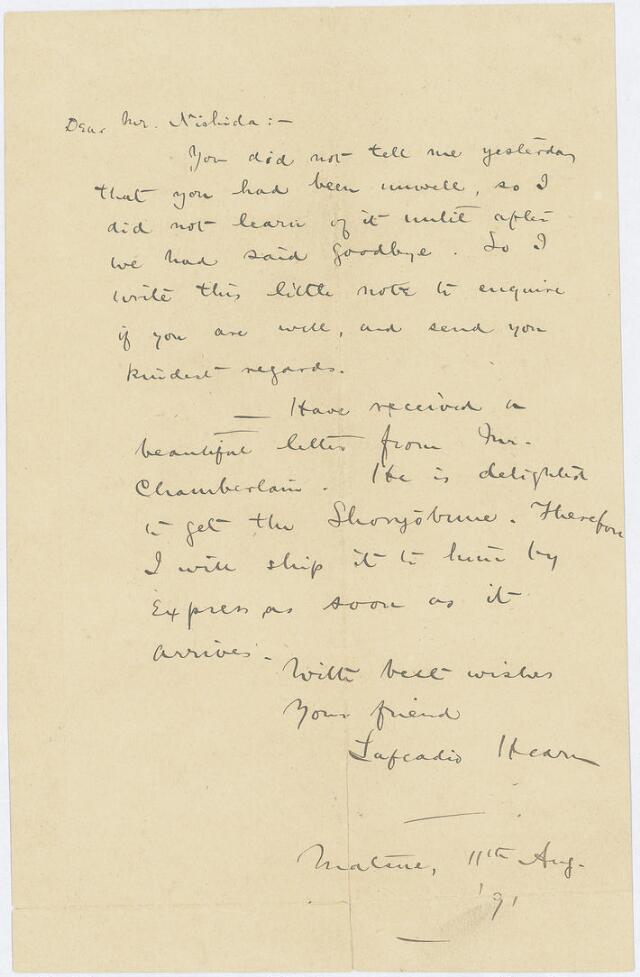 Dear Mr. Nishida:—
You did not tell me yesterday
that you had been unwell, so I
did not learn of it until after
we had said goodbye. So I
write this little note to enquire
if you are well, and send you
kindest regards.
— Have received a
beautiful letter from Mr.
Chamberlain. He is delighted
to get the Shōryōbune. Therefore
I will ship it to him by
Express as soon as it
arrives.
With best wishes
Your friend
Lafcadio Hearn
Matsue, 11th Aug.
'91